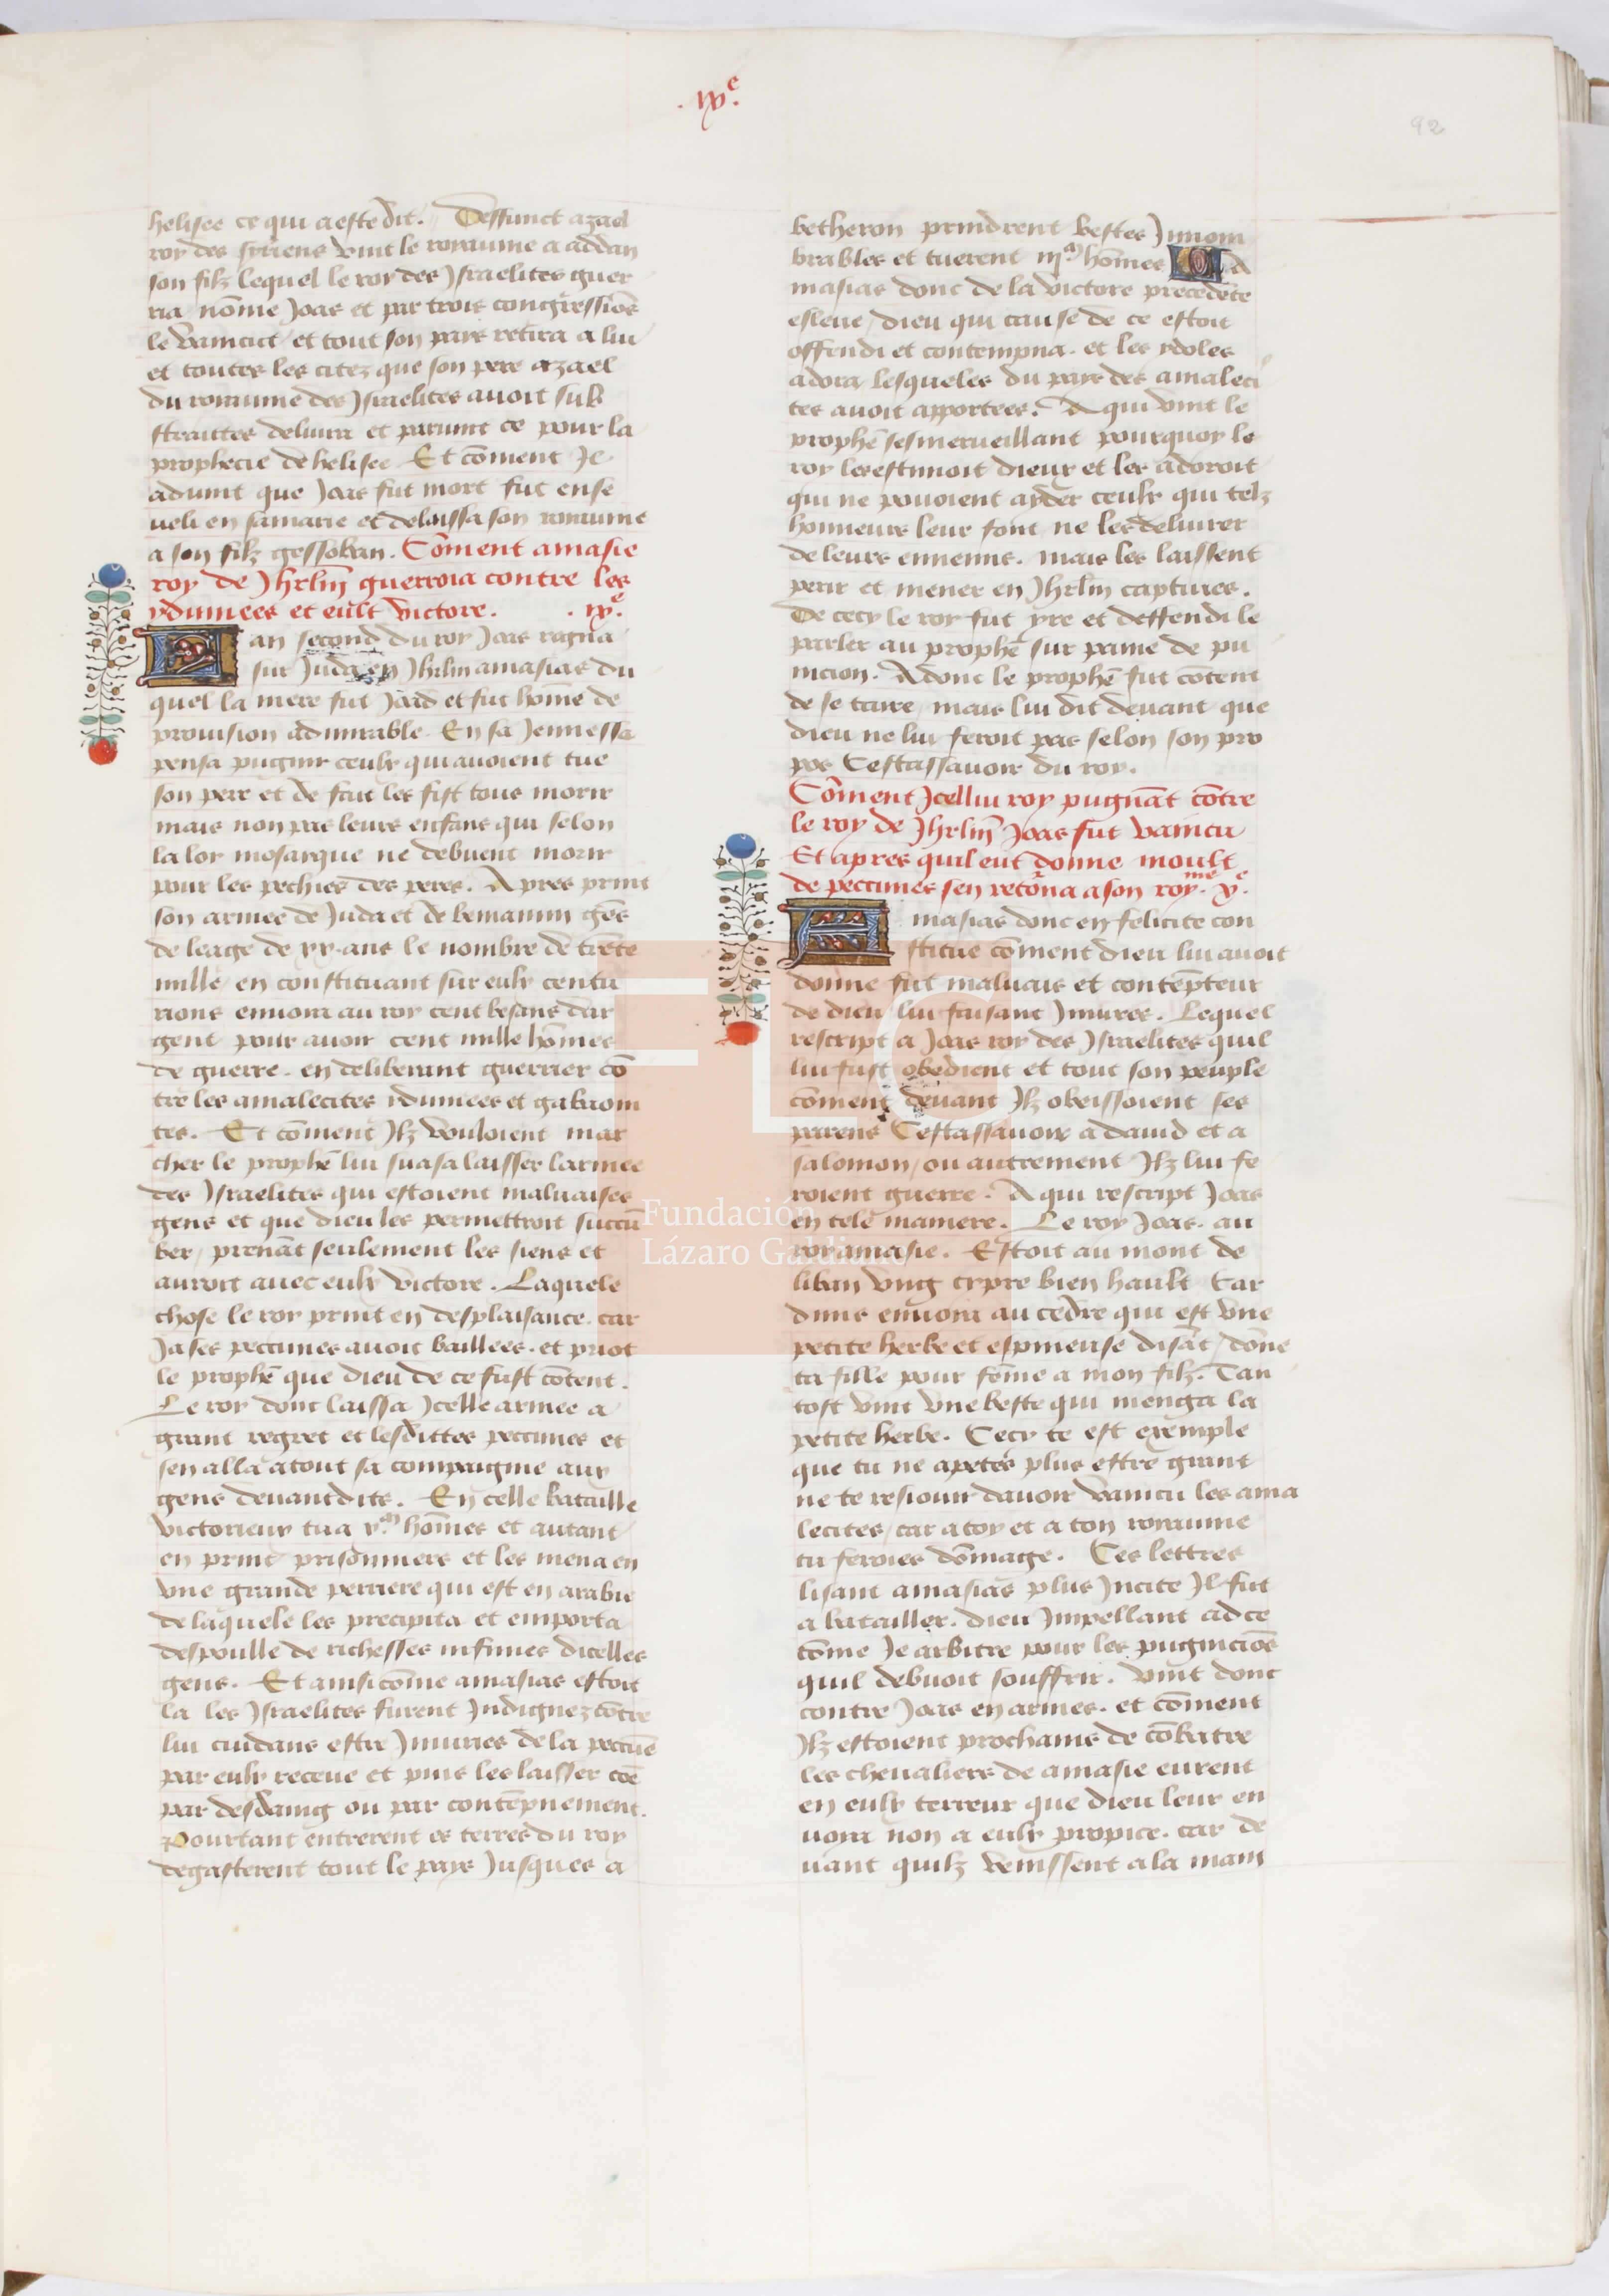 .ix.e
92
helisee ce qui a este dit. Deffunct azael
roy des syriens vint le royaume a addan
son filz lequel le roy des Israelites guer
ria nōme Joas et par trois congressiōs
le vaincut et tout son pays retira a lui
et toutes les citez que son pere azael
du royaume des Israelites avoit sub
straittes delivra et parvint ce pour la
prophecie de helisee Et cōment Je
advint que Joas fut mort fut ense
veli en samarie et delaissa son royaume
a son filz gessoban. Cōment amasie
roy de Jhrlm̄ guerroia contre les
ydumees et eult victore. .ix.e
L an second du roy Joas regna
sur Juda en Jhrlm amasias du
quel la mere fut Jaad et fut hōme de
provision admirable. En sa Jennesse
pensa pugnir ceulx qui avoient tue
son pere et de fait les fist tous morir
mais non pas leurs enfans qui selon
la loy mosayque ne debvent morir
pour les pechies des peres. Apres print
son armee de Juda et de beniamin gēs
de leage de xx. ans le nombre de trēte
mille en constituant sur eulx centu
rions envoia au roy cent besans dar
gent pour avoir cent mille hōmes
de guerre. en deliberant guerrier cō
tre les amalecites ydumees et gabaoni
tes. Et cōment Ilz vouloient mar
cher le prophē lui suasa laisser larmee
des Israelites qui estoient malvaises
gens et que dieu les permettroit succū
ber, prenāt seulement les siens et
auroit avec eulx victore. Laquele
chose le roy print en desplaisance. car
Ja ses peccunes avoit baillees. et priot
le prophē que dieu de ce fust cōtent.
Le roy donc laissa Icelle armee a
grant regret et lesdittes peccunes et
sen alla atout sa compaignie aux
gens devantdits. En celle bataille
victorieux tua x.m hōmes et autant
en print prisonniers et les mena en
une grande perriere qui est en arabie
de laquele les precipita et emporta
despoulle de richesses infinies dicelles
gens. Et ainsi cōme amasias estoit
la les Israelites furent Indignez cōtre
lui cuidans estre Iniuries de la peccūe
par eulx receue et puis les laisser cōe
par desdaing ou par contēpnement.
Pourtant entrerent es terres du roy
degasterent tout le pays Jusques a
betheron prindrent bestes Innom
brables et tuerent iij.m hōmes A
masias donc de la victore precedēte
esleve, dieu qui cause de ce estoit
offendi et contempna. et les ydoles
adora lesqueles du pays des amaleci
tes avoit apportees. A qui vint le
prophē sesmerveillant pourquoy le
roy les estimoit dieux et les adoroit
qui ne povoient ayder ceulx qui telz
honneurs leur font ne les delivrer
de leurs ennemis. mais les laissent
perir et mener en Jhrlm captives.
De cecy le roy fut yre et deffendi le
parler au prophē sur paine de pu
nicion. Adonc le prophē fut cōtent
de se taire, mais lui dit devant que
dieu ne lui feroit pas selon son pro
pos Cestassavoir du roy.
Cōment Icellui roy pugnāt cōtre
le roy de Jhrlm̄ Joas fut vaincu
Et apres quil eut donne moult
de peccunes sen retōna a son roy.me x.e
A masias donc en felicite con
stitue cōment dieu lui avoit
donne fut malvais et contēpteur
de dieu lui faisant Iniures. Lequel
rescript a Joas roy des Israelites quil
lui fust obedient et tout son peuple
cōment devant Ilz obeissoient ses
parens Cestassavoir a david et a
salomon, ou autrement Ilz lui fe
roient guerre. A qui rescript Joas
en tele maniere. Le roy Joas. au
roy amasie. Estoit au mont de
liban ung cypre bien hault Car
dus envoia au cedre qui est une
petite herbe et espineuse disāt, dōne
ta fille pour fēme a mon filz. Tan
tost vint une beste qui menga la
petite herbe. Cecy te est exemple
que tu ne apetes plus estre grant
ne te resiouir davoir vaincu les ama
lecites, car a toy et a ton royaume
tu feroies dōmage. Ces lettres
lisant amasias plus Incite Il fut
a batailler. dieu Impellant ad ce
cōme Je arbitre pour les pugniciōs
quil debvoit souffrir. vint donc
contre Joas en armes. et cōment
Ilz estoient prochains de cōbatre
les chevaliers de amasie eurent
en eulx terreur que dieu leur en
voia non a eulx propice. car de
vant quilz venissent a la main
Fundación
Lázaro Galdiano